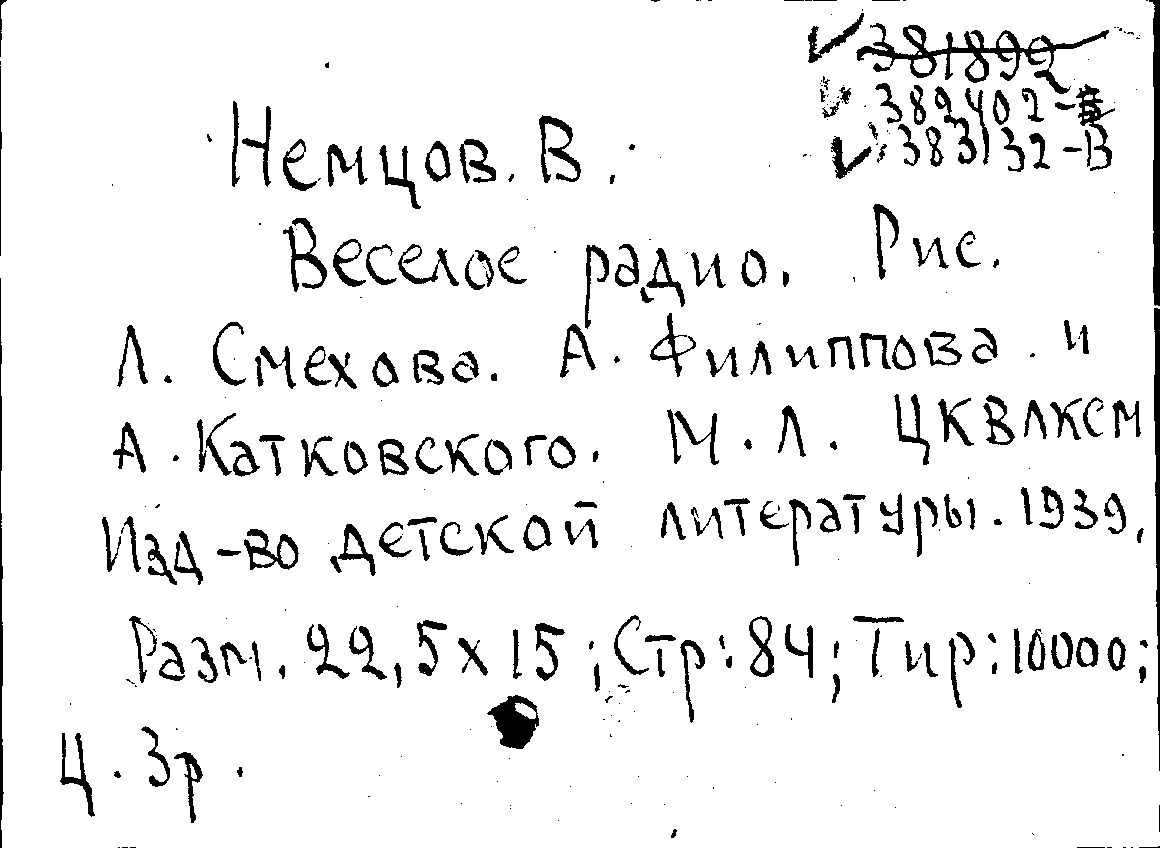 381892
382402-
383132-В
Немцов. В.
Веселое радио. Рис.
Л. Смехова. А. Филиппова. и
А. Катковского. М. Л. ЦКВЛКСМ
Изд-во детской литературы. 1939.
Разм. 22,5х15; Стр: 84; Тир: 10000;
Ц. 3р.